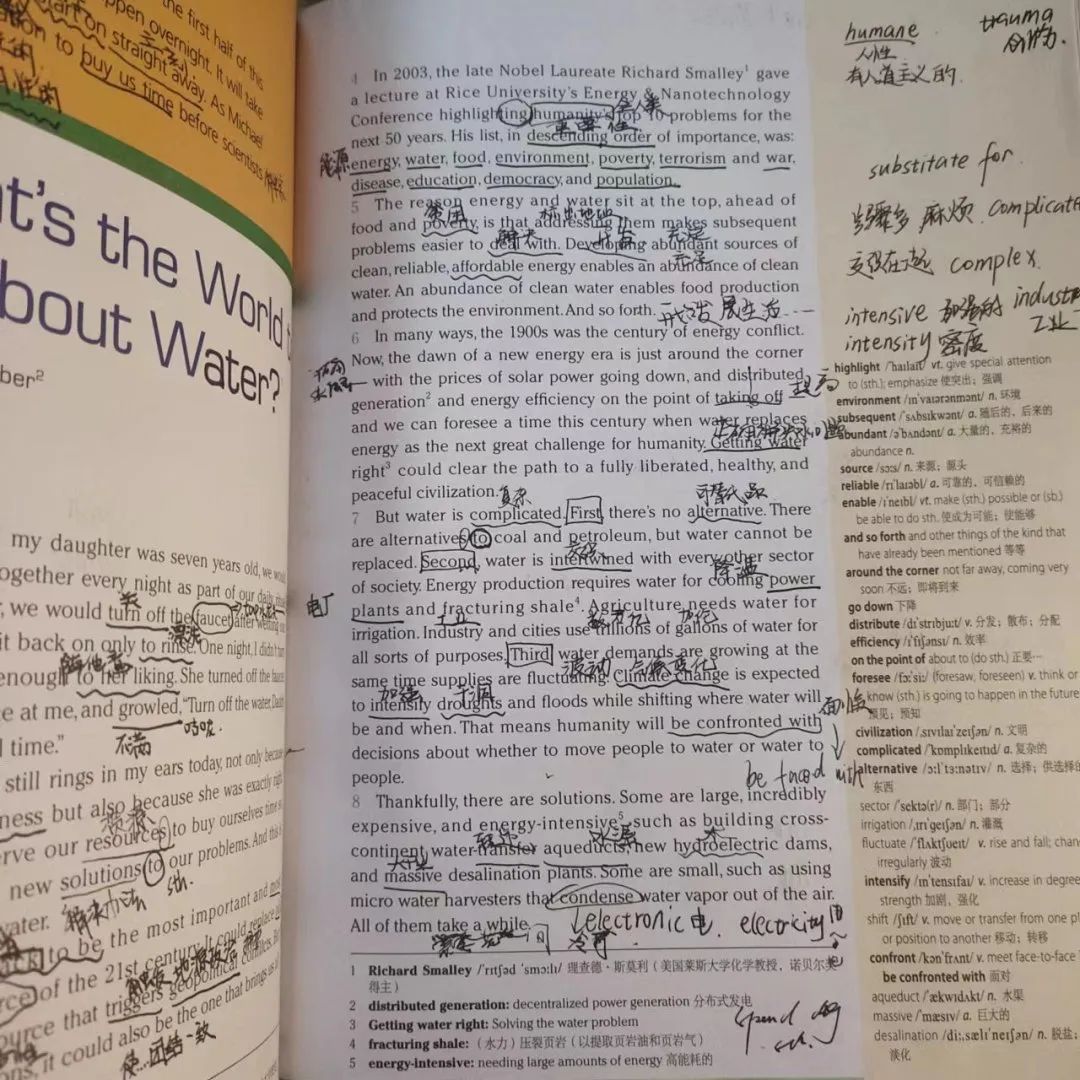 the first half of this
ppen overnight. It will take
start on straight away. As Michael
to buy us time before scientists
at's the World
bout Water?
ber²
my daughter was seven years old, we
together every night as part of our daily
we would turn off the faucet after wetting our
it back on only to rinse. One night, I didn't
enough to her liking. She turned off the faucet
at me, and growled, "Turn off the water, Dad
time."
still rings in my ears today, not only because
ness but also because she was exactly right
erve our resources to buy ourselves time
new solutions to our problems. And this
water.
to be the most important and
of the 21st century. It could replace
ource that triggers geopolitical conflicts. But
it could also be the one that brings us
不满
解决办法
sth.
使...团结一致
4 In 2003, the late Nobel Laureate Richard Smalley¹ gave
a lecture at Rice University's Energy & Nanotechnology
Conference highlighting humanity's top 10 problems for the
next 50 years. His list, in descending order of importance, was:
能源
energy, water, food, environment, poverty, terrorism and war,
disease, education, democracy, and population.
5 The reason energy and water sit at the top, ahead of
food and poverty, is that addressing them makes subsequent
problems easier to deal with. Developing abundant sources of
clean, reliable, affordable energy enables an abundance of clean
water. An abundance of clean water enables food production
and protects the environment. And so forth.
6 In many ways, the 1900s was the century of energy conflict.
Now, the dawn of a new energy era is just around the corner
— with the prices of solar power going down, and distributed
generation² and energy efficiency on the point of taking off
提高
and we can foresee a time this century when water replaces
energy as the next great challenge for humanity. Getting water
right³ could clear the path to a fully liberated, healthy, and
peaceful civilization.
复杂
可替代品
7 But water is complicated. First, there's no alternative. There
are alternatives to coal and petroleum, but water cannot be
replaced. Second, water is intertwined with every other sector
of society. Energy production requires water for cooling power
电厂
plants and fracturing shale⁴. Agriculture needs water for
irrigation. Industry and cities use trillions of gallons of water for
all sorts of purposes. Third, water demands are growing at the
波动
气候变化
same time supplies are fluctuating. Climate change is expected
加强
干涸
to intensify droughts and floods while shifting where water will
面临
be and when. That means humanity will be confronted with
decisions about whether to move people to water or water to
people.
be faced with
8 Thankfully, there are solutions. Some are large, incredibly
expensive, and energy-intensive⁵, such as building cross-
continent water-transfer aqueducts, new hydroelectric dams,
and massive desalination plants. Some are small, such as using
micro water harvesters that condense water vapor out of the air.
All of them take a while.
electronic 电
electricity
冷凝
1 Richard Smalley /ˈrɪtʃəd ˈsmɔːlɪ/ 理查德·斯莫利（美国莱斯大学化学教授，诺贝尔奖
得主）
2 distributed generation: decentralized power generation 分布式发电
3 Getting water right: Solving the water problem
4 fracturing shale:（水力）压裂页岩（以提取页岩油和页岩气）
5 energy-intensive: needing large amounts of energy 高能耗的
humane
trauma
人性
创伤
有人道主义的
substitate for
步骤多 麻烦 complicate
complex
intensive 加强的 industr
工业
intensity 密度
highlight /ˈhaɪlaɪt/ vt. give special attention
to (sth.); emphasize 使突出；强调
environment /ɪnˈvaɪərənmənt/ n. 环境
subsequent /ˈsʌbsɪkwənt/ a. 随后的、后来的
abundant /əˈbʌndənt/ a. 大量的、充裕的
abundance n.
source /sɔːs/ n. 来源；源头
reliable /rɪˈlaɪəbl/ a. 可靠的、可信赖的
enable /ɪˈneɪbl/ vt. make (sth.) possible or (sb.)
be able to do sth. 使成为可能；使能够
and so forth and other things of the kind that
have already been mentioned 等等
around the corner not far away, coming very
soon 不远；即将到来
go down 下降
distribute /dɪˈstrɪbjuːt/ v. 分发；散布；分配
efficiency /ɪˈfɪʃnsɪ/ n. 效率
on the point of about to (do sth.) 正要…
foresee /fɔːˈsiː/ (foresaw, foreseen) v. think or
know (sth.) is going to happen in the future
预见；预知
civilization /ˌsɪvɪlaɪˈzeɪʃən/ n. 文明
complicated /ˈkɒmplɪkeɪtɪd/ a. 复杂的
alternative /ɔːlˈtɜːnətɪv/ n. 选择；供选择的
东西
sector /ˈsektə(r)/ n. 部门；部分
irrigation /ˌɪrɪˈgeɪʃən/ n. 灌溉
fluctuate /ˈflʌktʃueɪt/ v. rise and fall; chan
irregularly 波动
intensify /ɪnˈtensɪfaɪ/ v. increase in degree
strength 加剧，强化
shift /ʃɪft/ v. move or transfer from one pl
or position to another 移动；转移
confront /kənˈfrʌnt/ v. meet face-to-face
be confronted with 面对
aqueduct /ˈækwɪdʌkt/ n. 水渠
massive /ˈmæsɪv/ a. 巨大的
desalination /diːˌsælɪˈneɪʃən/ n. 脱盐；
淡化